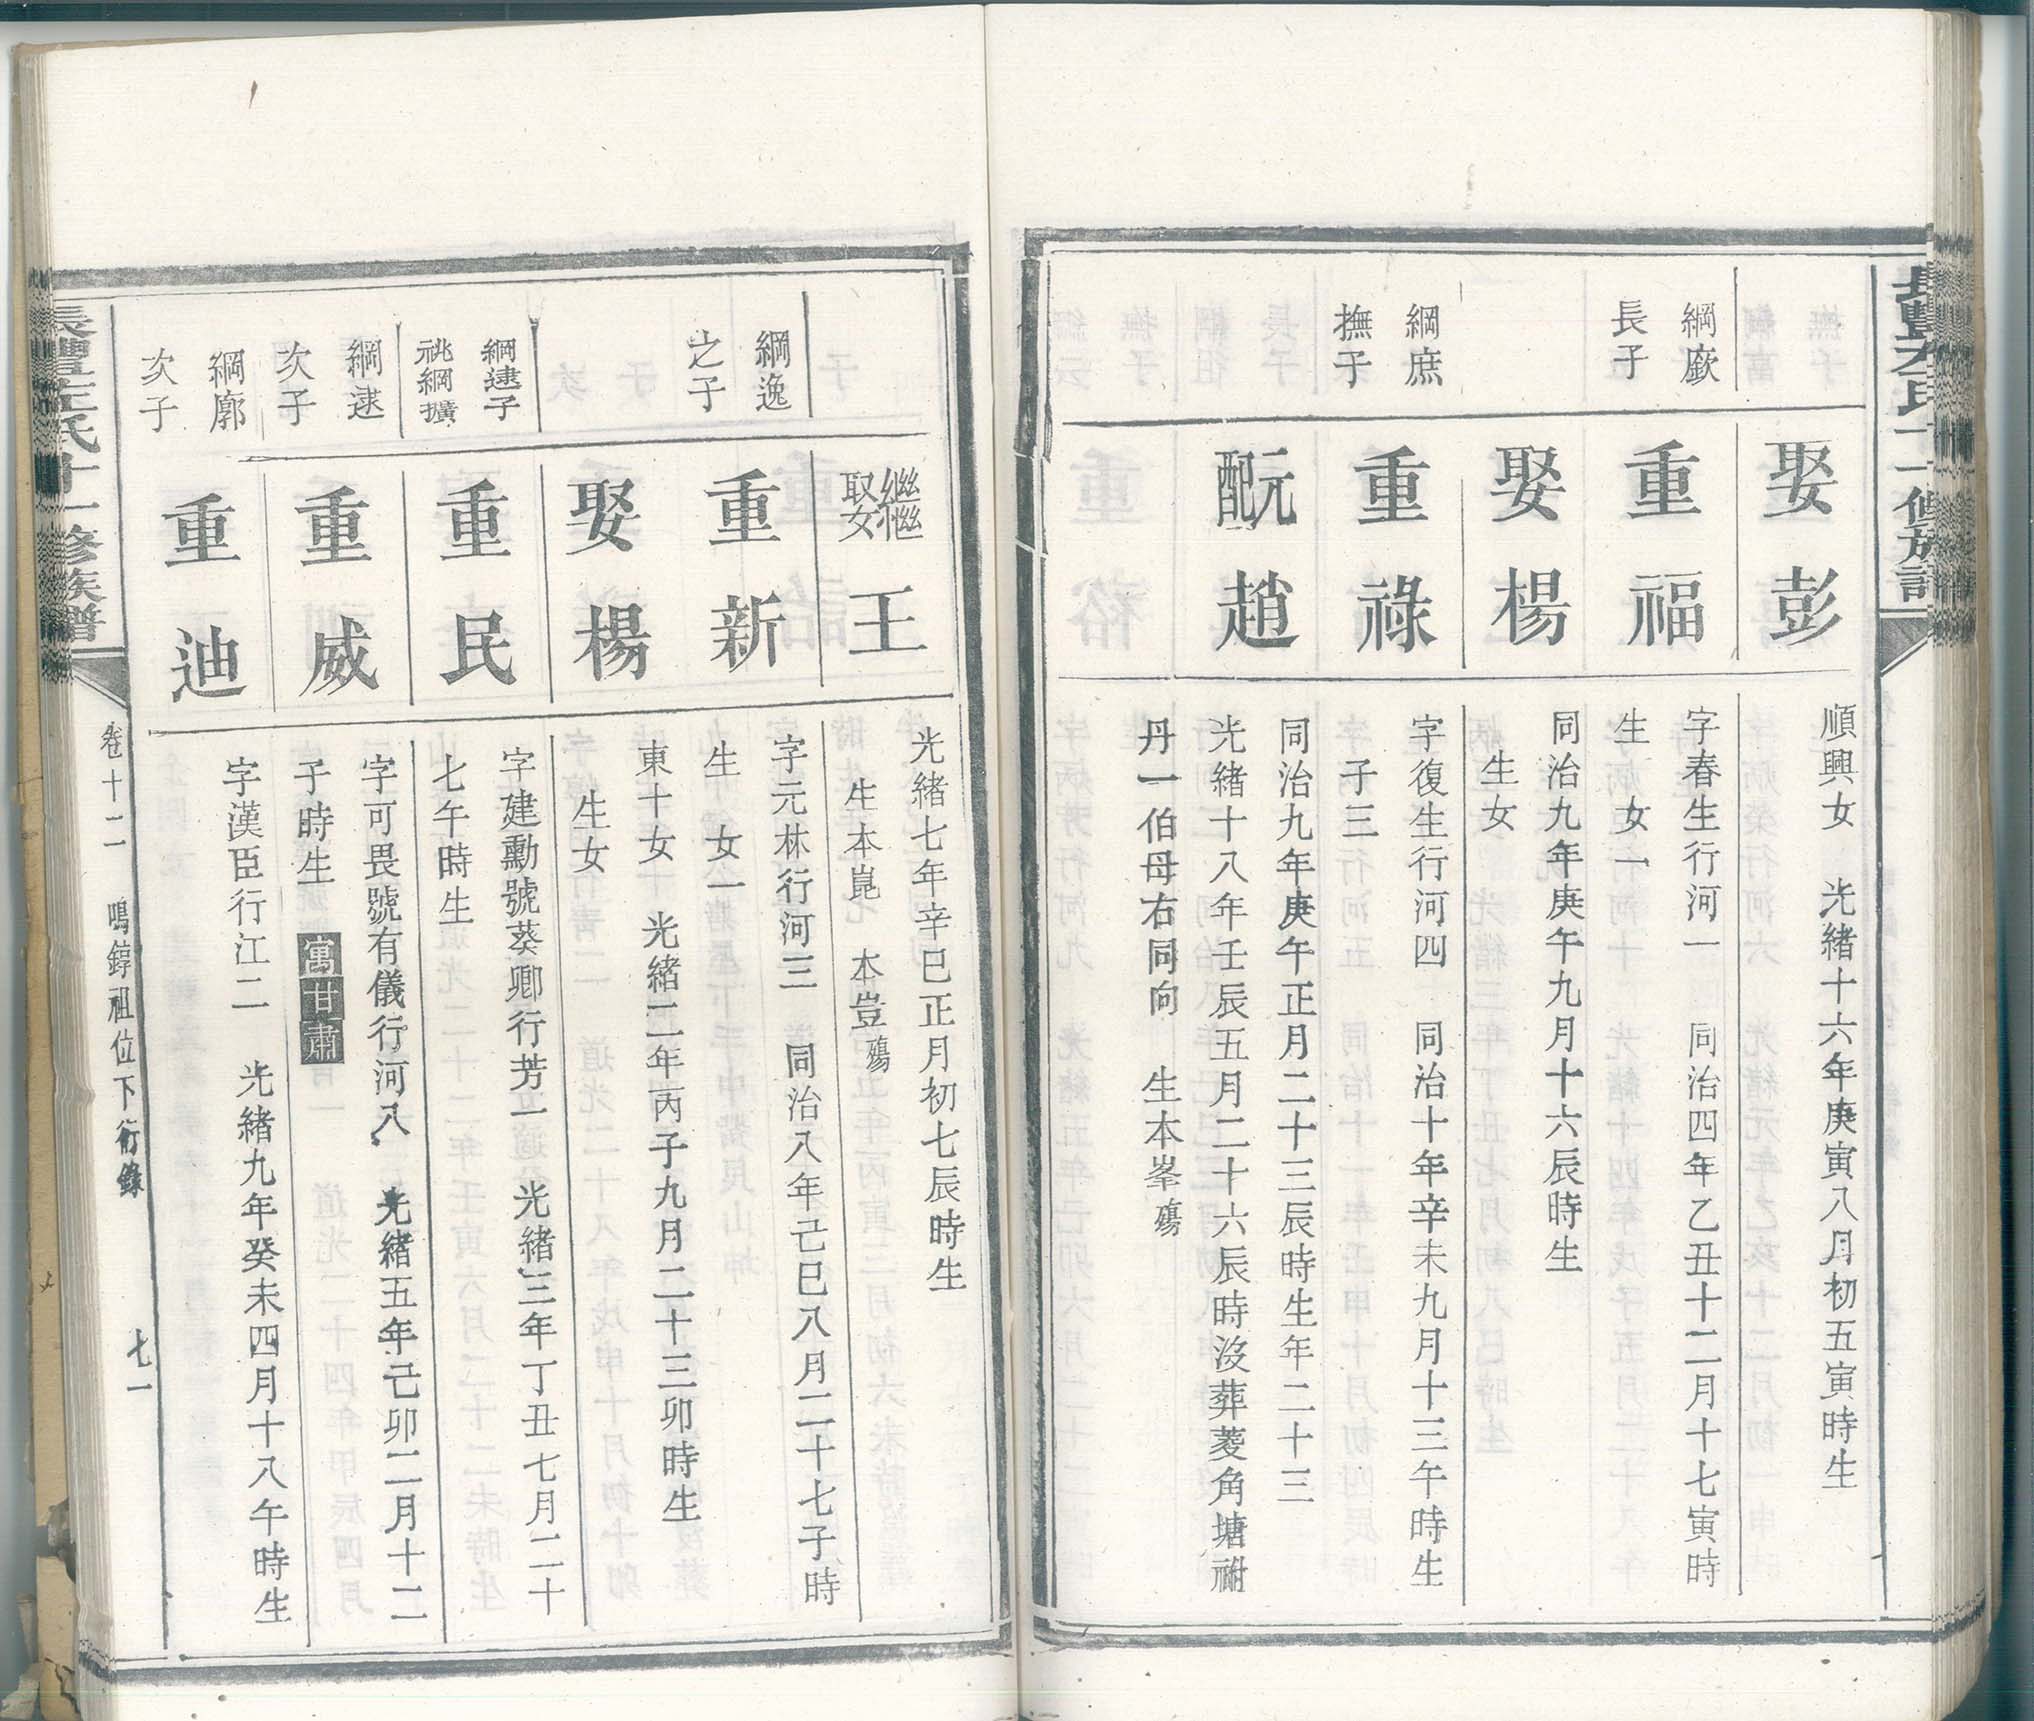 娶彭
順興女　光緒十六年庚寅八月初五寅時生
綱廞
長子
重福
字春生行河一　同治四年乙丑十二月十七寅時
生　女一
娶楊
同治九年庚午九月十六辰時生
生女
綱庶
撫子
重祿
字復生行河四　同治十年辛未九月十三午時生
子三
元配趙
同治九年庚午正月二十三辰時生年二十三
光緒十八年壬辰五月二十六辰時沒葬菱角塘祔
丹一伯母右同向　生本峯殤
繼娶王
光緒七年辛巳正月初七辰時生
生本崑　本豈殤
綱逸
之子
重新
字元林行河三　同治八年己巳八月二十七子時
生　女一
娶楊
東十女　光緒二年丙子九月二十三卯時生
生女
綱逮子
祧綱擴
重民
字建勳號葵卿行芳一　光緒三年丁丑七月二十
七午時生
綱逮
次子
重威
字可畏號有儀行河八　光緒五年己卯二月十二
子時生　寓甘肅
綱廓
次子
重迪
字漢臣行江二　光緒九年癸未四月十八午時生
左氏十一修族譜
卷十二　鳴錞祖位下衍錄　七一